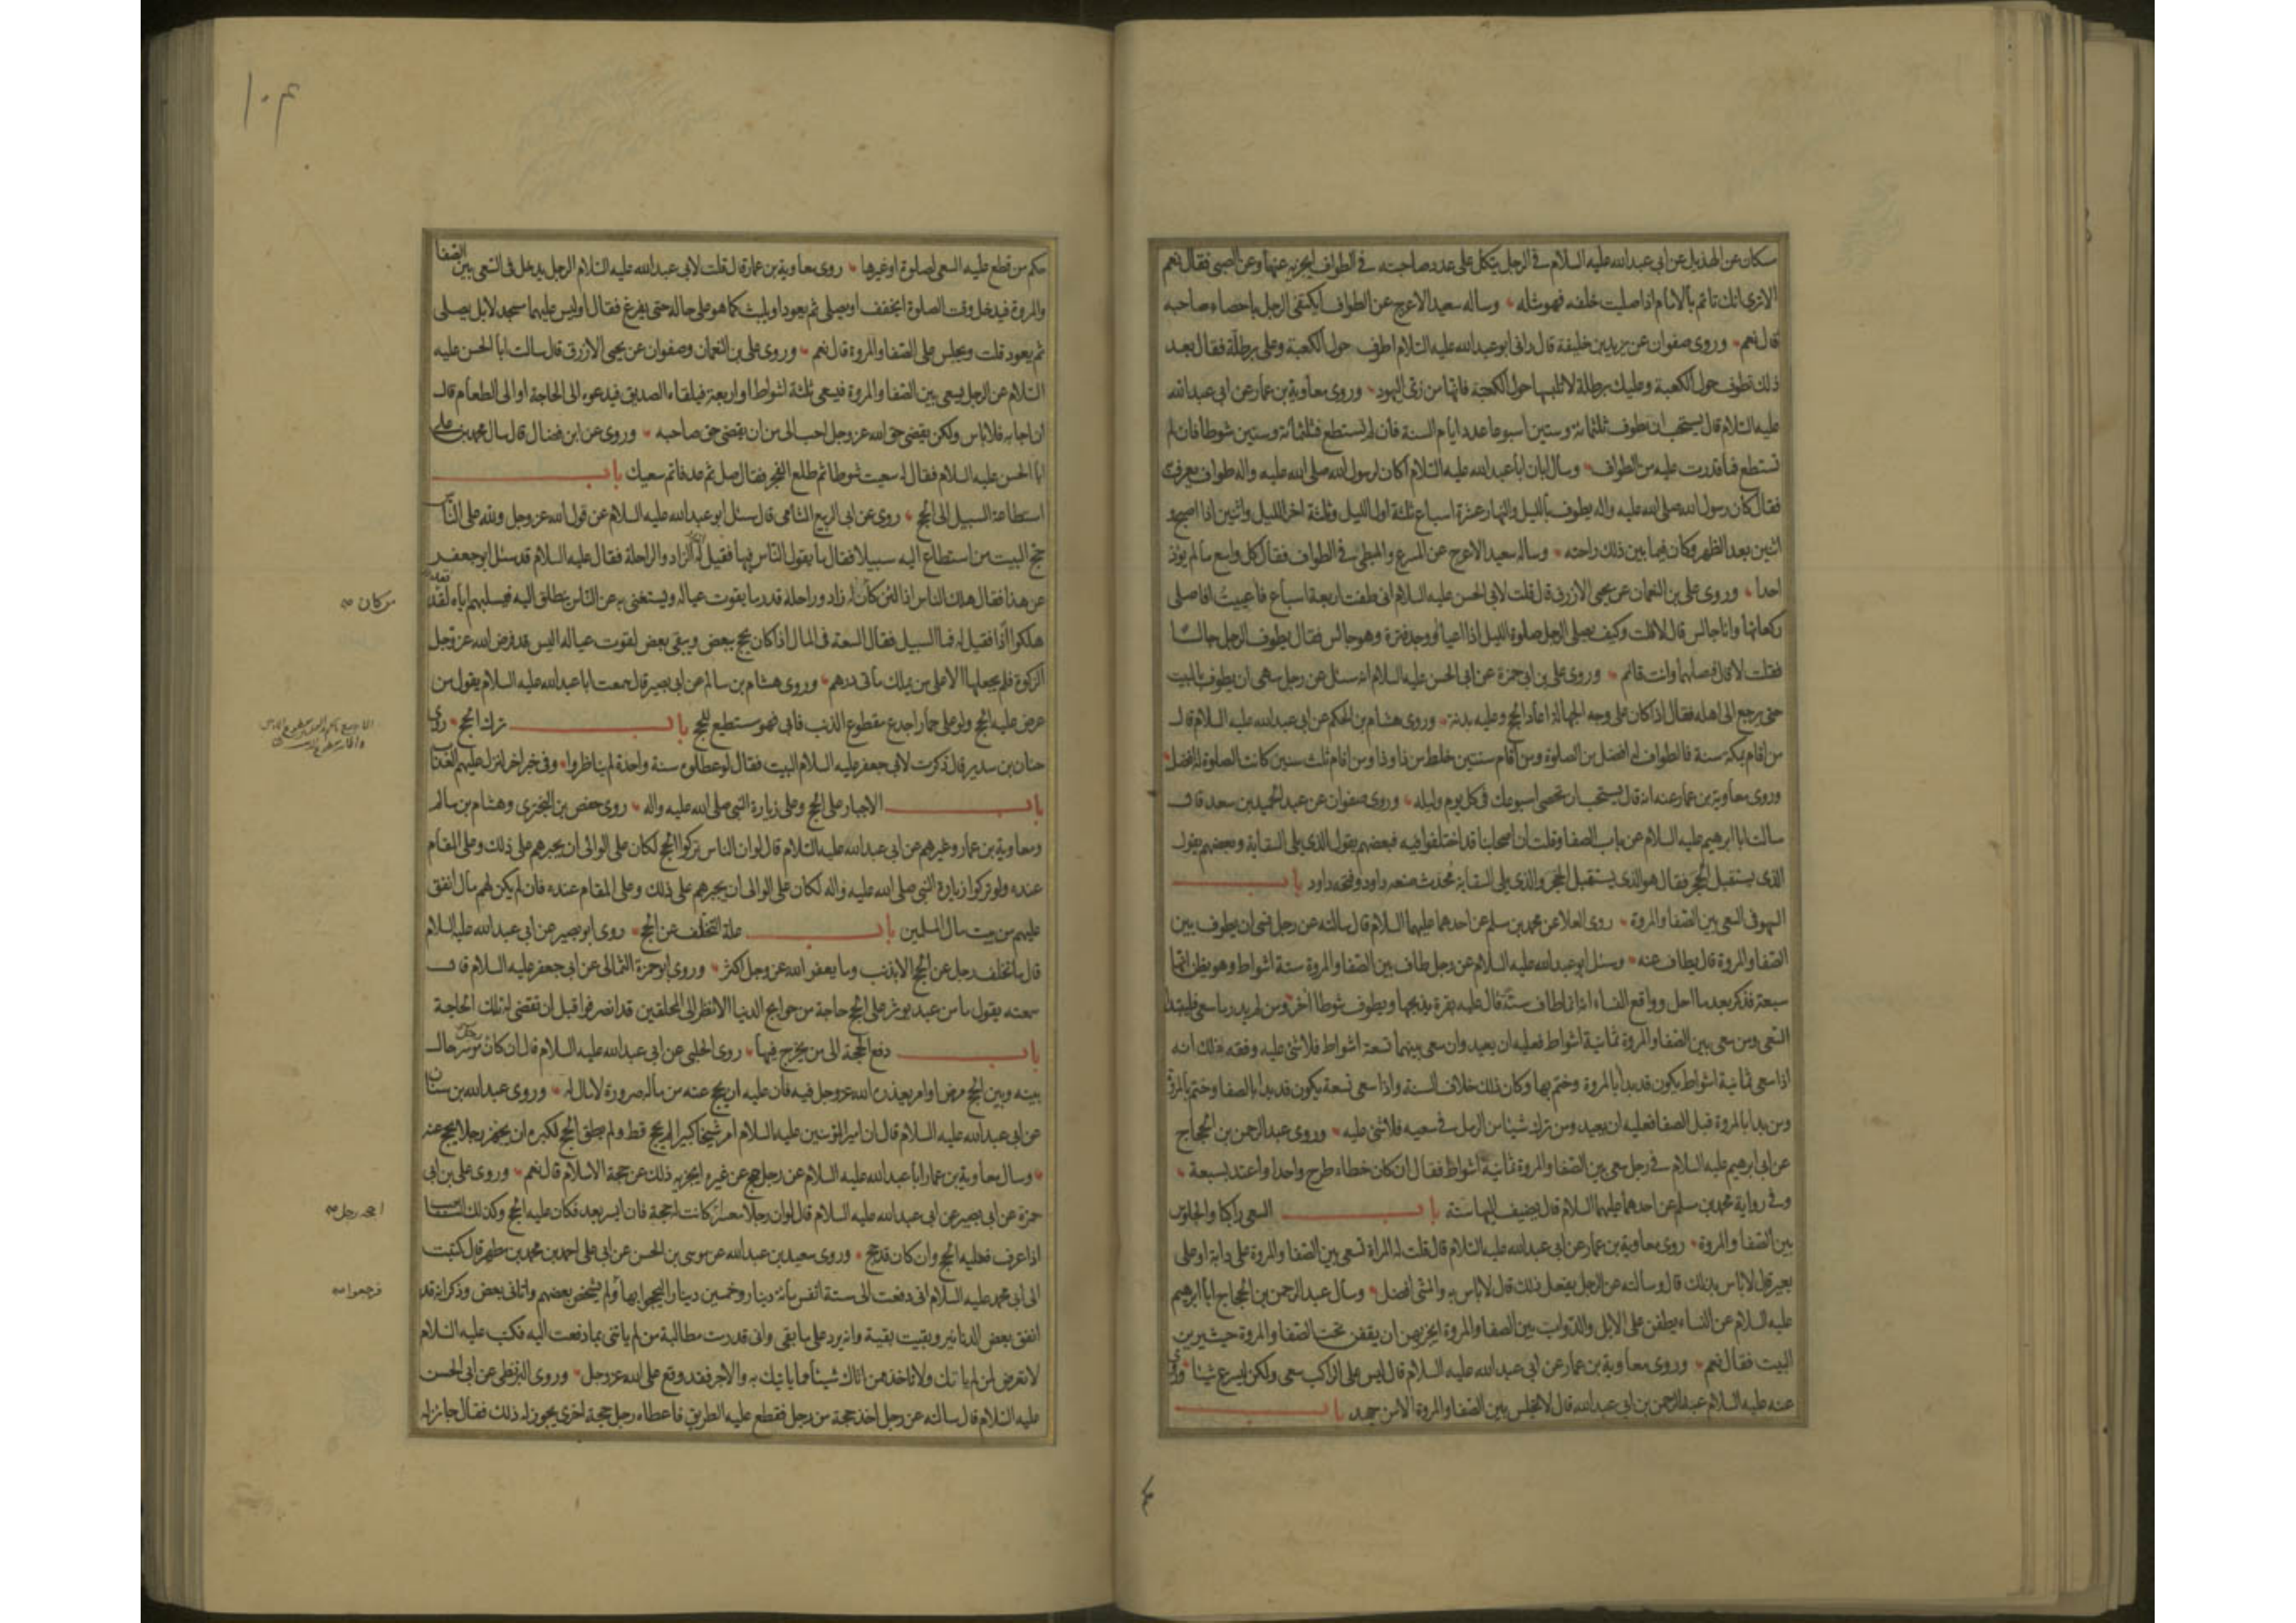 سكان عن الهذيل عن ابي عبدالله عليه السلام في الرجل يتكل على عدد صاحبته في الطواف ايجزيه عنها وعن الصبي فقال نعم
الا ترى انك تاتم بالامام اذا صليت خلفه فهو مثله وساله سعيد الاعرج عن الطواف ايكتفي الرجل باحصاء صاحبه
قال نعم وروى صفوان عن يزيد بن خليفة قال راني ابو عبدالله عليه السلام اطوف حول الكعبة وعلي برطلة فقال بعد
ذلك تطوف حول الكعبة وعليك برطلة لا تلبسها حول الكعبة فانها من زي اليهود وروى معاوية بن عمار عن ابي عبدالله
عليه السلام قال يستحب ان تطوف ثلثمائة وستين اسبوعا عدد ايام السنة فان لم تستطع فثلثمائة وستين شوطا فان لم
تستطع فما قدرت عليه من الطواف وسال ابان ابا عبدالله عليه السلام اكان لرسول الله صلى الله عليه واله طواف يعرف به
فقال كان رسول الله صلى الله عليه واله يطوف بالليل والنهار عشرة اسباع ثلثة اول الليل وثلثة اخر الليل واثنين اذا اصبح و
اثنين بعد الظهر وكان فيما بين ذلك راحته وساله سعيد الاعرج عن المسرع والمبطئ في الطواف فقال كل واسع ما لم يؤذ
احدا وروى علي بن النعمان عن يحيى الازرق قال قلت لابي الحسن عليه السلام اني طفت اربعة اسباع فاعييت افاصلي
ركعاتها وانا جالس قال لا قلت وكيف يصلي الرجل صلوة الليل اذا اعيا او وجد فترة وهو جالس فقال يطوف الرجل جالسا
فقلت لا قال فصلهما وانت قائم وروى علي بن ابي حمزة عن ابي الحسن عليه السلام انه سئل عن رجل سهى ان يطوف بالبيت
حتى يرجع الى اهله فقال اذا كان على وجه الجهالة اعاد الحج وعليه بدنة وروى هشام بن الحكم عن ابي عبدالله عليه السلام قال
من اقام بمكة سنة فالطواف له افضل من الصلوة ومن اقام سنتين خلط من ذا وذا ومن اقام ثلث سنين كانت الصلوة له افضل
وروى معاوية بن عمار عنه انه قال يستحب ان تحصي اسبوعك في كل يوم وليله وروى صفوان عن عبد الحميد بن سعد قال
سالت ابا ابرهيم عليه السلام عن باب الصفا وقلت ان اصحابنا قد اختلفوا فيه فبعضهم يقول الذي يلي السقاية وبعضهم يقول
الذي يستقبل الحجر فقال هو الذي يستقبل الحجر والذي يلي السقاية محدث صنعه داود وفتحه داود باب
السهو في السعي بين الصفا والمروة روى العلا عن محمد بن مسلم عن احدهما عليهما السلام قال سالته عن رجل نسي ان يطوف بين
الصفا والمروة قال يطاف عنه وسئل ابو عبدالله عليه السلام عن رجل طاف بين الصفا والمروة ستة اشواط وهو يظن انها
سبعة فذكر بعد ما احل وواقع النساء انه انما طاف ستة قال عليه بقرة يذبحها ويطوف شوطا اخر ومن لم يدر ما سعى فليبتدا
السعي ومن سعى بين الصفا والمروة ثمانية اشواط فعليه ان يعيد وان سعى بينهما تسعة اشواط فلا شئ عليه وفقه ذلك انه
اذا سعى ثمانية اشواط يكون قد بدا بالمروة وختم بها وكان ذلك خلاف السنة واذا سعى تسعة يكون قد بدا بالصفا وختم بالمروة
ومن بدا بالمروة قبل الصفا فعليه ان يعيد ومن ترك شيئا من الرمل في سعيه فلا شئ عليه وروى عبد الرحمن بن الحجاج
عن ابي ابرهيم عليه السلام في رجل سعى بين الصفا والمروة ثمانية اشواط فقال ان كان خطاء طرح واحدا واعتد بسبعة
وفي رواية محمد بن مسلم عن احدهما عليهما السلام قال يضيف اليها ستة باب السعي راكبا والجلوس
بين الصفا والمروة روى معاوية بن عمار عن ابي عبدالله عليه السلام قال قلت له المراة تسعى بين الصفا والمروة على دابة او على
بعير قال لا باس بذلك قال وسالته عن الرجل يفعل ذلك قال لا باس به والمشي افضل وسال عبد الرحمن بن الحجاج ابا ابرهيم
عليه السلام عن النساء يطفن على الابل والدواب بين الصفا والمروة ايجزيهن ان يقفن تحت الصفا والمروة حيث يرين
البيت فقال نعم وروى معاوية بن عمار عن ابي عبدالله عليه السلام قال ليس على الراكب سعى ولكن ليسرع شيئا وروى
عنه عليه السلام عبد الرحمن بن ابي عبدالله قال لا تجلس بين الصفا والمروة الا من جهد باب
۱۰۴
حكم من قطع عليه السعي لصلوة او غيرها روى معاوية بن عمار قال قلت لابي عبدالله عليه السلام الرجل يدخل في السعي بين الصفا
والمروة فيدخل وقت الصلوة ايخفف او يصلي ثم يعود او يلبث كما هو على حاله حتى يفرغ فقال او ليس عليهما مسجد لا بل يصلي
ثم يعود قلت ويجلس على الصفا والمروة قال نعم وروى علي بن النعمان وصفوان عن يحيى الازرق قال سالت ابا الحسن عليه
السلام عن الرجل يسعى بين الصفا والمروة فيسعى ثلثة اشواط او اربعة فيلقاه الصديق فيدعوه الى الحاجة او الى الطعام قال
ان اجابه فلا باس ولكن يقضي حق الله عز وجل احب الي من ان يقضي حق صاحبه وروى عن ابن فضال قال سال محمد بن علي
ابا الحسن عليه السلام فقال له سعيت شوطا ثم طلع الفجر فقال صل ثم عد فاتم سعيك باب
استطاعة السبيل الى الحج روى عن ابي الربيع الشامي قال سئل ابو عبدالله عليه السلام عن قول الله عز وجل ولله على الناس
حج البيت من استطاع اليه سبيلا فقال ما يقول الناس فيها فقيل له الزاد والراحلة فقال عليه السلام قد سئل ابو جعفر
عن هذا فقال هلك الناس اذا لئن كان له زاد وراحلة قدر ما يقوت عياله ويستغني به عن الناس ينطلق اليه فيسلبهم اياه لقد
من كان
هلكوا اذا فقيل له فما السبيل فقال السعة في المال اذا كان يحج ببعض ويبقى بعض لقوت عياله اليس قد فرض الله عز وجل
الزكوة فلم يجعلها الا على من يملك مائتى درهم وروى هشام بن سالم عن ابي بصير قال سمعت ابا عبدالله عليه السلام يقول من
عرض عليه الحج ولو على حمار اجدع مقطوع الذنب فابى فهو مستطيع للحج باب ترك الحج روى
حنان بن سدير قال ذكرت لابي جعفر عليه السلام البيت فقال لو عطلوه سنة واحدة لم يناظروا وفي خبر اخر لنزل عليهم العذاب
باب الاجبار على الحج وعلى زيارة النبي صلى الله عليه واله روى حفص بن البختري وهشام بن سالم
ومعاوية بن عمار وغيرهم عن ابي عبدالله عليه السلام قال لو ان الناس تركوا الحج لكان على الوالي ان يجبرهم على ذلك وعلى المقام
عنده ولو تركوا زيارة النبي صلى الله عليه واله لكان على الوالي ان يجبرهم على ذلك وعلى المقام عنده فان لم يكن لهم مال انفق
عليهم من بيت مال المسلمين باب علة التخلف عن الحج روى ابو بصير عن ابي عبدالله عليه السلام
قال ما تخلف رجل عن الحج الا بذنب وما يعفو الله عز وجل اكثر وروى ابو حمزة الثمالي عن ابي جعفر عليه السلام قال
سمعته يقول ما من عبد يوثر على الحج حاجة من حوايج الدنيا الا نظر الى المحلقين قد انصرفوا قبل ان تقضى له تلك الحاجة
باب دفع الحجة الى من يخرج فيها روى الحلبي عن ابي عبدالله عليه السلام قال ان كان موسر حال
بينه وبين الحج مرض او امر يعذره الله عز وجل فيه فان عليه ان يحج عنه من ماله صرورة لا مال له وروى عبدالله بن سنان
عن ابي عبدالله عليه السلام قال ان امير المؤمنين عليه السلام امر شيخا كبيرا لم يحج قط ولم يطق الحج لكبره ان يجهز رجلا يحج عنه
وسال معاوية بن عمار ابا عبدالله عليه السلام عن رجل حج عن غيره ايجزيه ذلك عن حجة الاسلام قال نعم وروى علي بن ابي
حمزة عن ابي بصير عن ابي عبدالله عليه السلام قال لو ان رجلا معسرا كانت له حجة فان ايسر بعد فكان عليه الحج وكذلك الناصب
احجه رجل
اذا عرف فعليه الحج وان كان قد حج وروى سعيد بن عبدالله عن موسى بن الحسن عن ابي علي احمد بن محمد بن مطهر قال كتبت
الى ابي محمد عليه السلام اني دفعت الى ستة انفس مائة دينار وخمسين دينارا ليحجوا بها ولم يشخص بعضهم واتاني بعض وذكر انه قد
فرجعوا
انفق بعض الدنانير وبقيت بقية وانه يرد علي ما بقي واني قد رمت مطالبة من لم ياتني بما دفعت اليه فكتب عليه السلام
لا تعرض لمن لم ياتك ولا تاخذ ممن اتاك شيئا مما ياتيك به والاجر فقد وقع على الله عز وجل وروى البزنطي عن ابي الحسن
عليه السلام قال سالته عن رجل اخذ حجة من رجل فقطع عليه الطريق فاعطاه رجل حجة اخرى يجوز له ذلك فقال جائز له